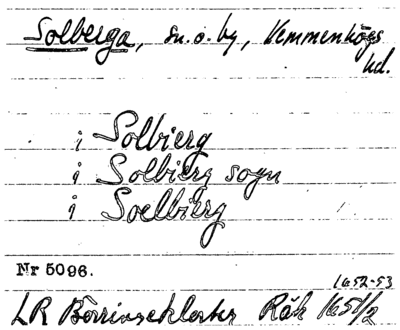 Solberga, sn. o. by, Vemmenhögs
hd.
i Solbierg
i Solbierg sogn
i Soelbierg
Nr 5096.
1652-53
LR Börringekloster Räk 1651/2